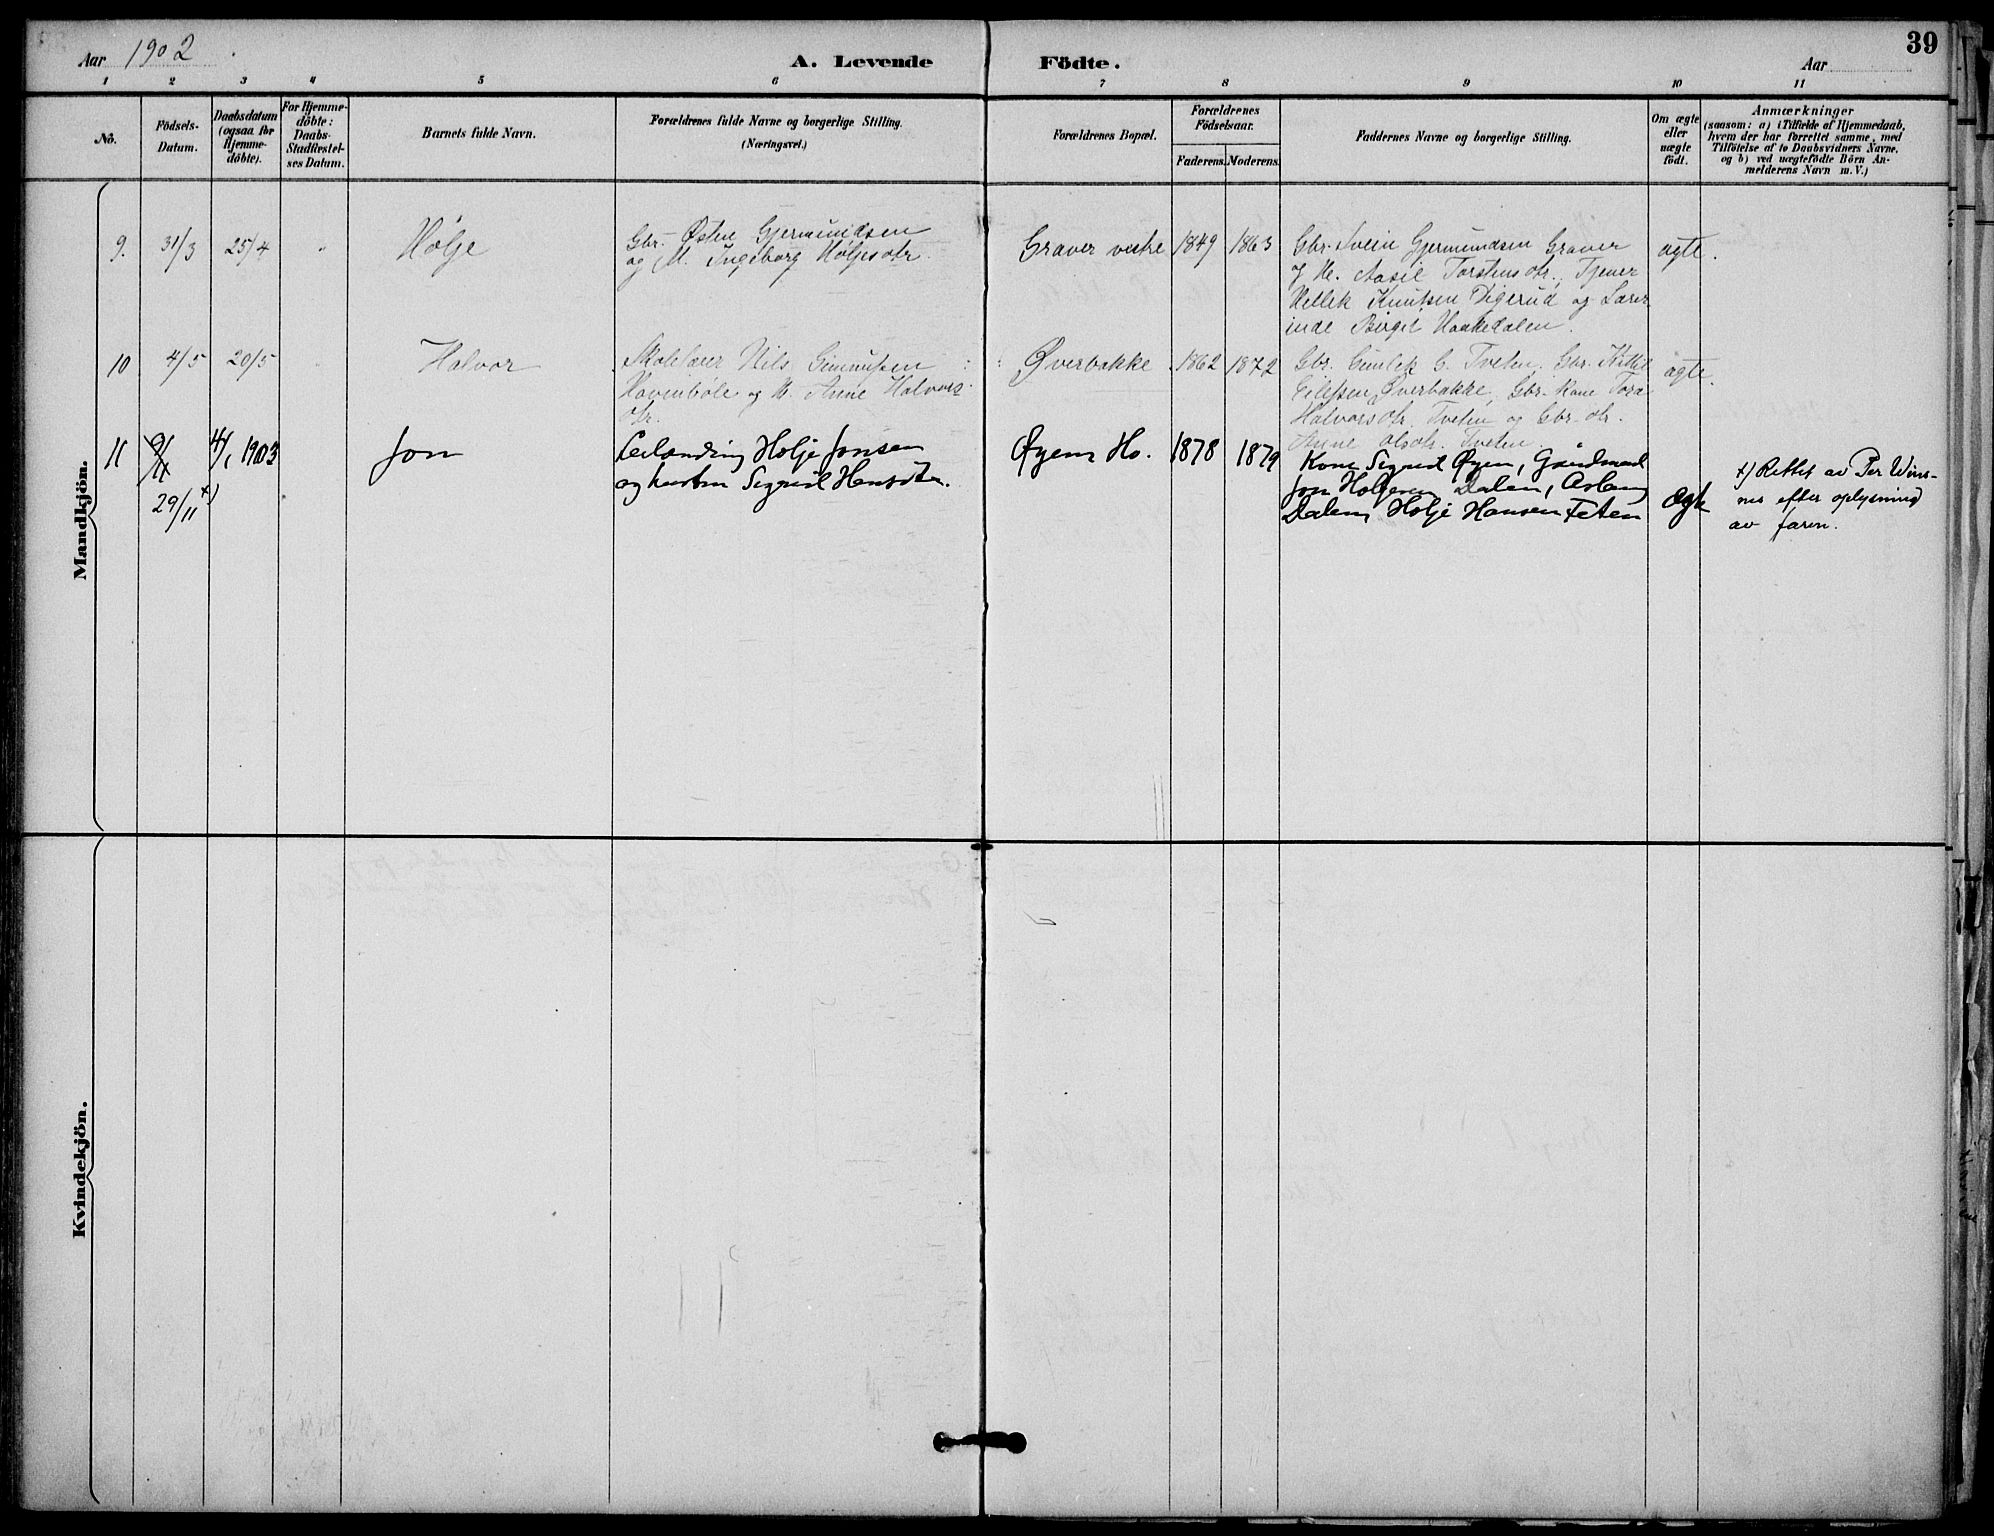 39
Aar 1902
A. Levende Födte.
Aar
1 2 3 4 5 6 7 8 9 10 11
No.
Födsels-
Datum.
Daabsdatum
(ogsaa for
Hjemme-
döbte).
For Hjemme-
döbte:
Daabs-
Stadfæstel-
ses Datum.
Barnets fulde Navn.
Forældrenes fulde Navne og borgerlige Stilling.
(Næringsvei.)
Forældrenes Bopæl.
Forældrenes
Födselsaar.
Faderens. Moderens.
Faddernes Navne og borgerlige Stilling.
Om ægte
eller
uægte
födt.
Anmærkninger
(saasom: a) i Tilfælde af Hjemmedaab,
hvem der har forrettet samme, med
Tilföielse af to Daabsvidners Navne,
og b) ved uægtefödte Börn An-
melderens Navn m.V.)
Mandkjön.
9. 31/3 25/4 " Hølje
Gbr. Østen Gjermundsen
og M. Ingeborg Høljesdtr.
Graver vestre 1849 1863
Gbr. Svein Gjermundsen Graver
og H. Aasil Torstensdtr., Tjener
Hellik Knutsen Digerud og Lærer
inde Birgit Haakedalen.
ægte.
10 4/5 20/5 Halvor
Skolelærer Nils
Hovenbøle og H. Anne Halvors-
dtr.
Øverbakke 1862 1872
Gbr. Gunlek G. Tveten, Gbr. Kittil
Eilefsen Øverbakke, Gbr. Kone Tora
Halvorsdtr. Tveten og Gbr. dtr.
Anne Olsdtr. Tveten.
ægte.
11 9/11 4/1 1903 Jon
29/11 x)
Hølje Jonsen
og hustru Sigrid Hansdtr.
Øyen Ho. 1878 1879
Kone Sigrid Øyen, Gaardmand
Jon Holjesen Dalen, Aslaug
Dalen, Holje Hansen Teten
ægte
x) Rettet av Per Wins-
nes efter oplysning
av faren.
Kvindekjön.